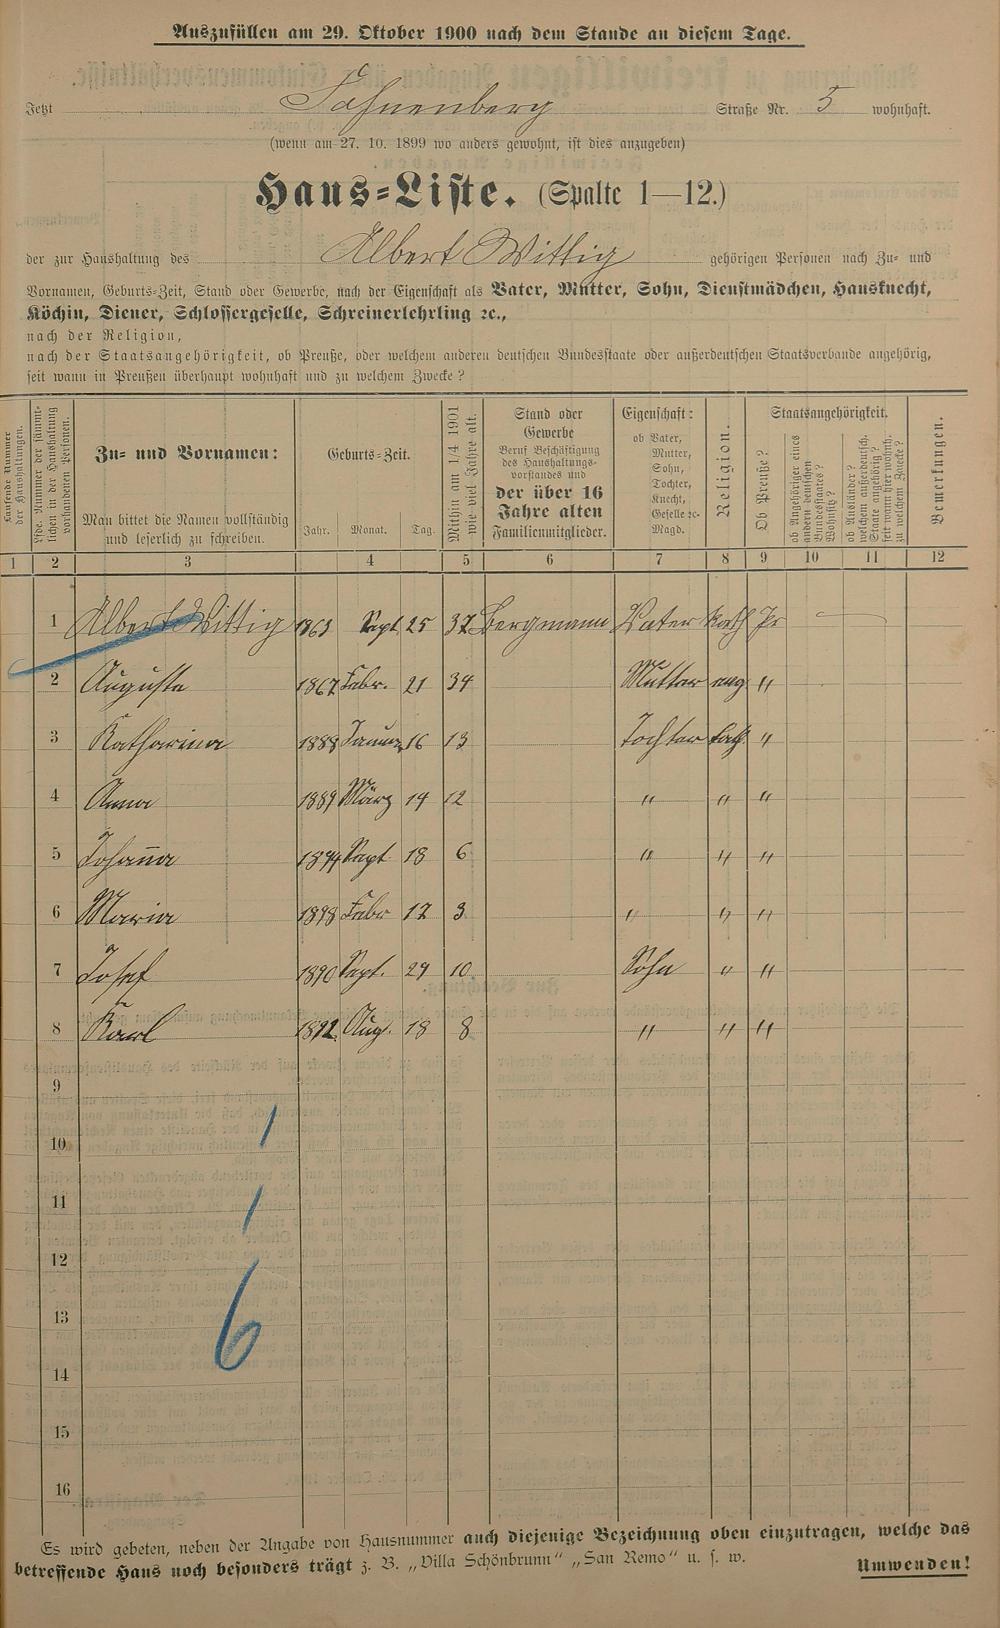 Auszufüllen am 29. Oktober 1900 nach dem Stande an diesem Tage.
Jetzt Fahnenberg Straße Nr. 5 wohnhaft.
(wenn am 27. 10. 1899 wo anders gewohnt, ist dies anzugeben)
Haus-Liste. (Spalte 1—12.)
der zur Haushaltung des Albert Wittig gehörigen Personen nach Zu- und
Vornamen, Geburts-Zeit, Stand oder Gewerbe, nach der Eigenschaft als Vater, Mutter, Sohn, Dienstmädchen, Hausknecht,
Köchin, Diener, Schlossergeselle, Schreinerlehrling ꝛc.,
nach der Religion,
nach der Staatsangehörigkeit, ob Preuße, oder welchem anderen deutschen Bundesstaate oder außerdeutschen Staatsverbande angehörig,
seit wann in Preußen überhaupt wohnhaft und zu welchem Zwecke?
Laufende Nummer
der Haushaltungen.
Lfde. Nummer der sämmt-
lichen in der Haushaltung
vorhandenen Personen.
Zu- und Vornamen:
Man bittet die Namen vollständig
und leserlich zu schreiben.
Geburts-Zeit.
Jahr. Monat. Tag.
Mithin am 1/4 1901
wie viel Jahre alt.
Stand oder
Gewerbe
Beruf Beschäftigung
des Haushaltungs-
vorstandes und
der über 16
Jahre alten
Familienmitglieder.
Eigenschaft:
ob Vater,
Mutter,
Sohn,
Tochter,
Knecht,
Geselle ꝛc.
Magd.
Religion.
Staatsangehörigkeit.
Ob Preuße?
ob Angehöriger eines
andern deutschen
Bundesstaates?
Wohnsitz?
ob Ausländer?
welchem außerdeutsch.
Staate angehörig?
seit wann hier wohnh.
zu welchem Zwecke?
Bemerkungen.
1 2 3 4 5 6 7 8 9 10 11 12
1 Albert Wittig 1863 Sept. 25 37 Bergmann Vater Kath Pr
2 Auguste 1867 Febr. 21 34 Mutter evg "
3 Katharina 1888 Januar 16 13 Tochter kath. "
4 Anna 1889 März 14 12 " " "
5 Johanna 1894 Sept 18 6 " " "
6 Maria 1898 Febr 12 3 " " "
7 Josef 1890 Sept. 29 10 Sohn " "
8 Karl 1892 Aug. 18 8 " " "
9
10 1
11 1
12
13 6
14
15
16
Es wird gebeten, neben der Angabe von Hausnummer auch diejenige Bezeichnung oben einzutragen, welche das
betreffende Haus noch besonders trägt z. B. „Villa Schönbrunn“ „San Remo“ u. s. w.
Umwenden!